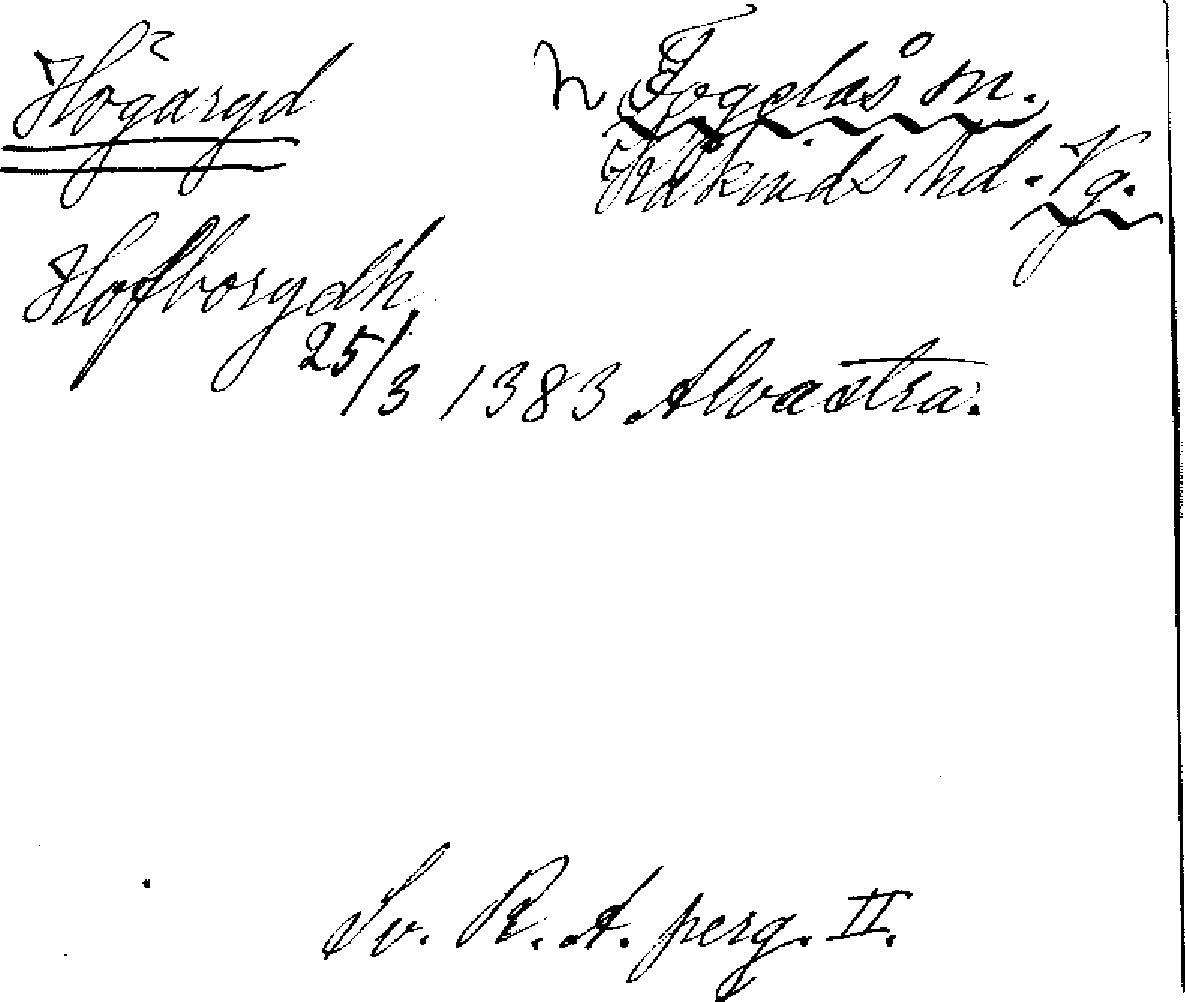 Högaryd n Fogelås sn.
Kåkinds hd. Vg.
Hofborydh
25/3 1383 Alvastra.
Sv. R. A. perg. II.